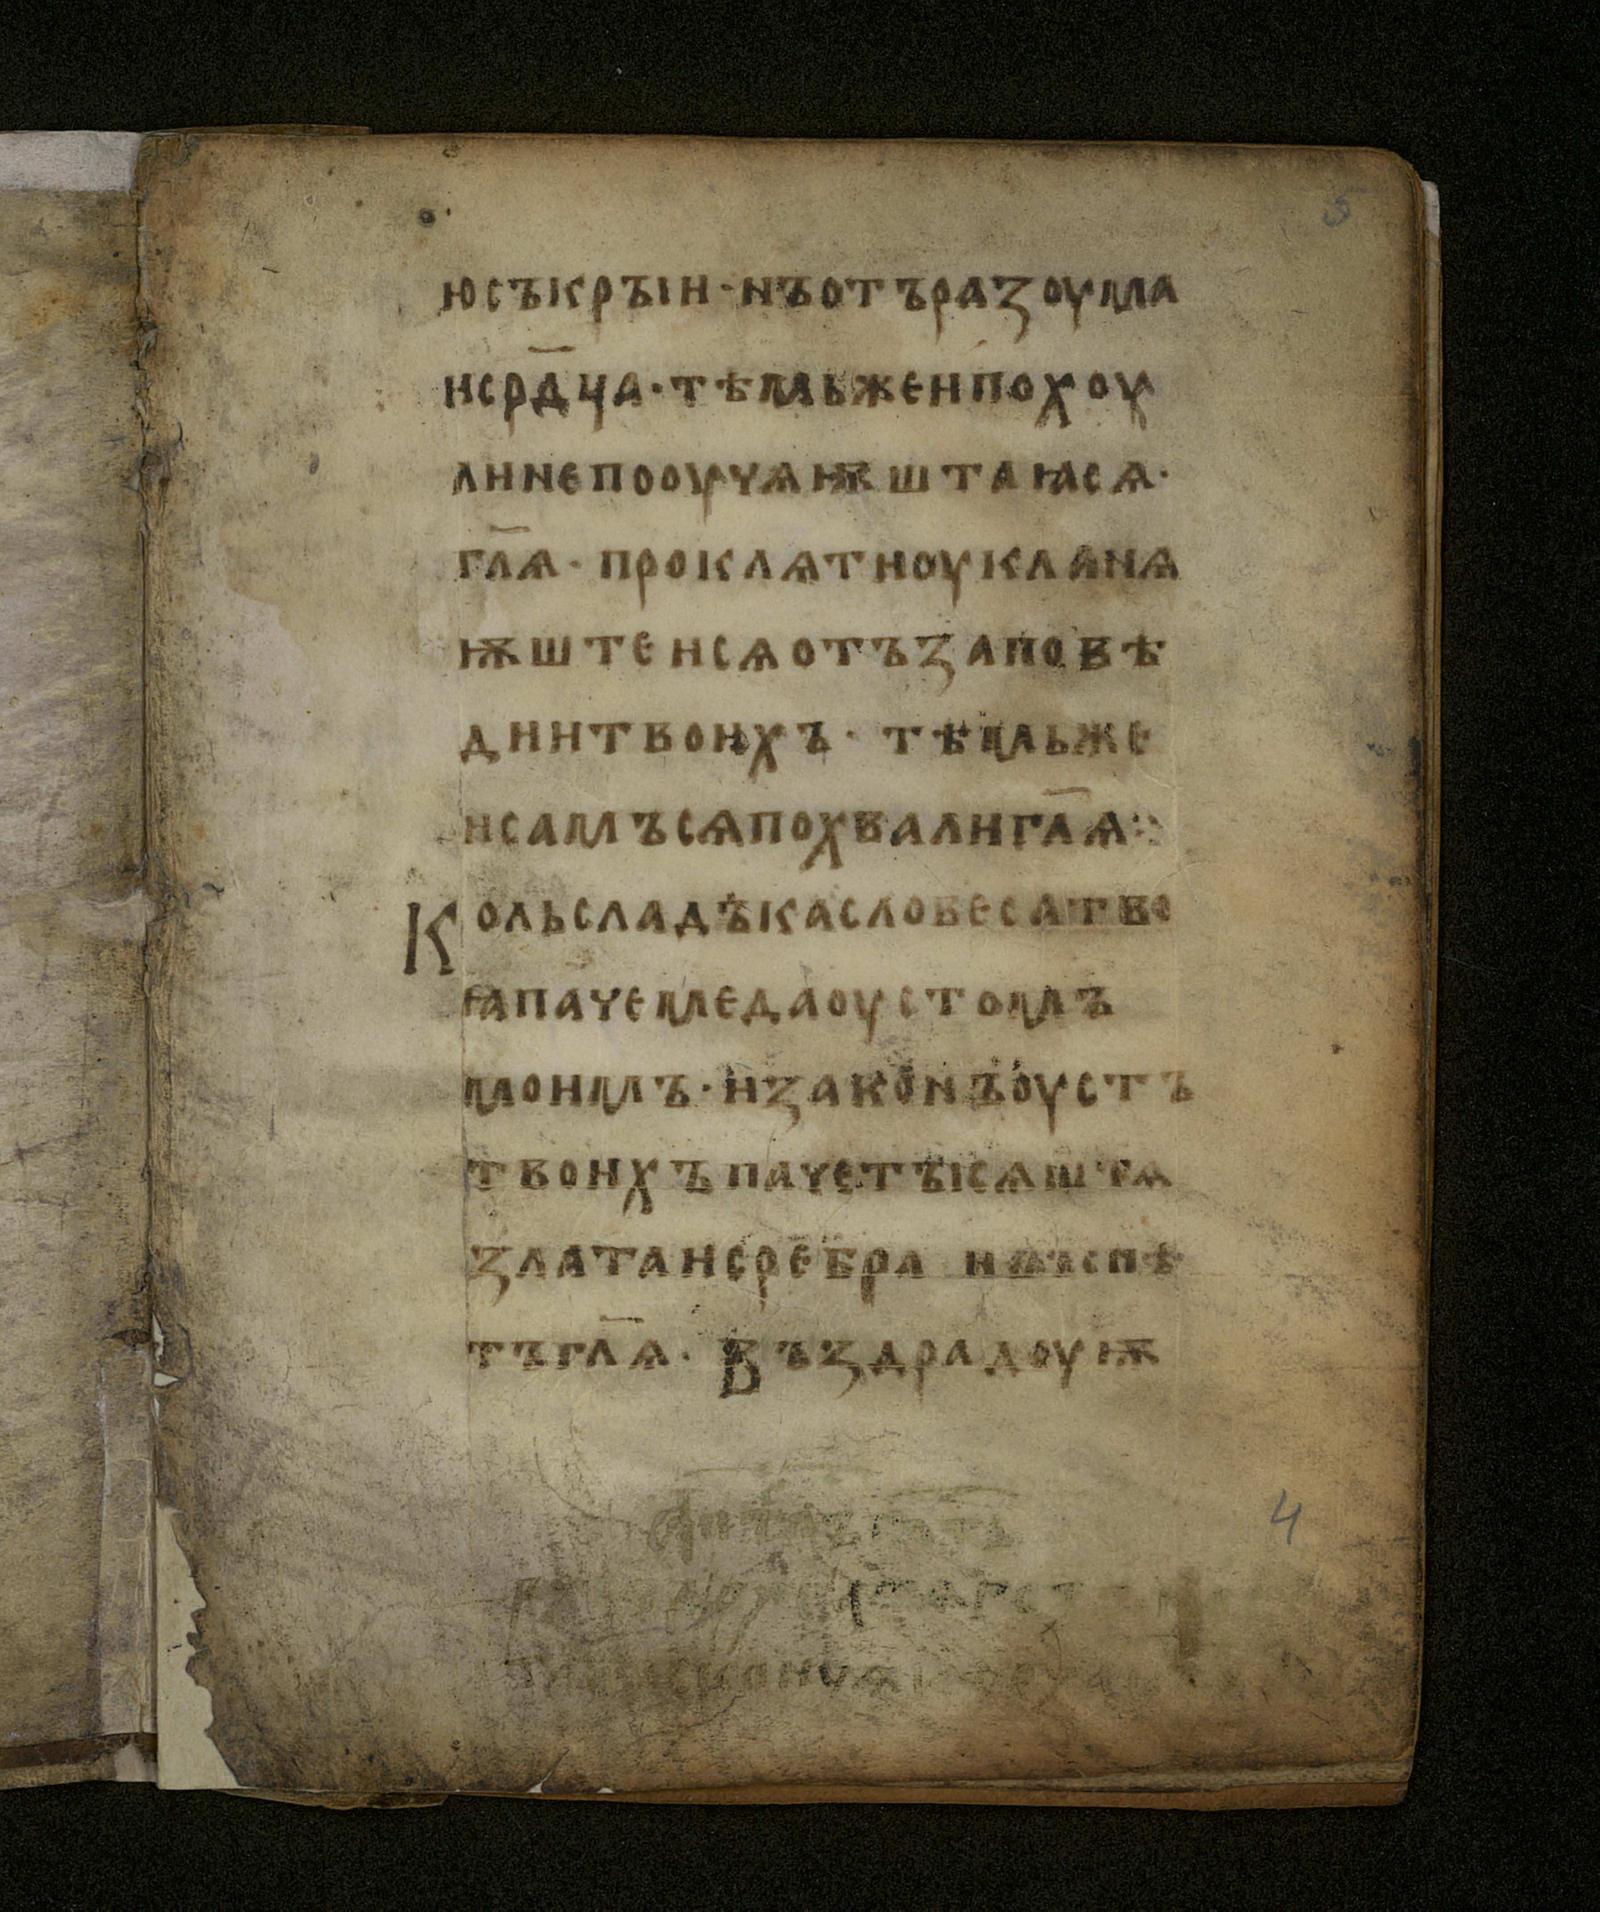 5
ю съкрꙑи · нъ отъ разоума
и ср҃дца · тѣмьже и похоу
ли не пооучѧѭштаꙗ сѧ ·
гл҃ѧ · проклѧти оукланѧ
ѭштеи сѧ отъ заповѣ
дии твоихъ · тѣмьже
и самъ сѧ похвали гл҃ѧ :
Коль сладъка словеса тво
ꙗ паче меда оустомъ
моимъ · и законъ оустъ
твоихъ паче тꙑсѧштѧ
злата и сребра
тъ гл҃ѧ · Въздрадоуѭ
4